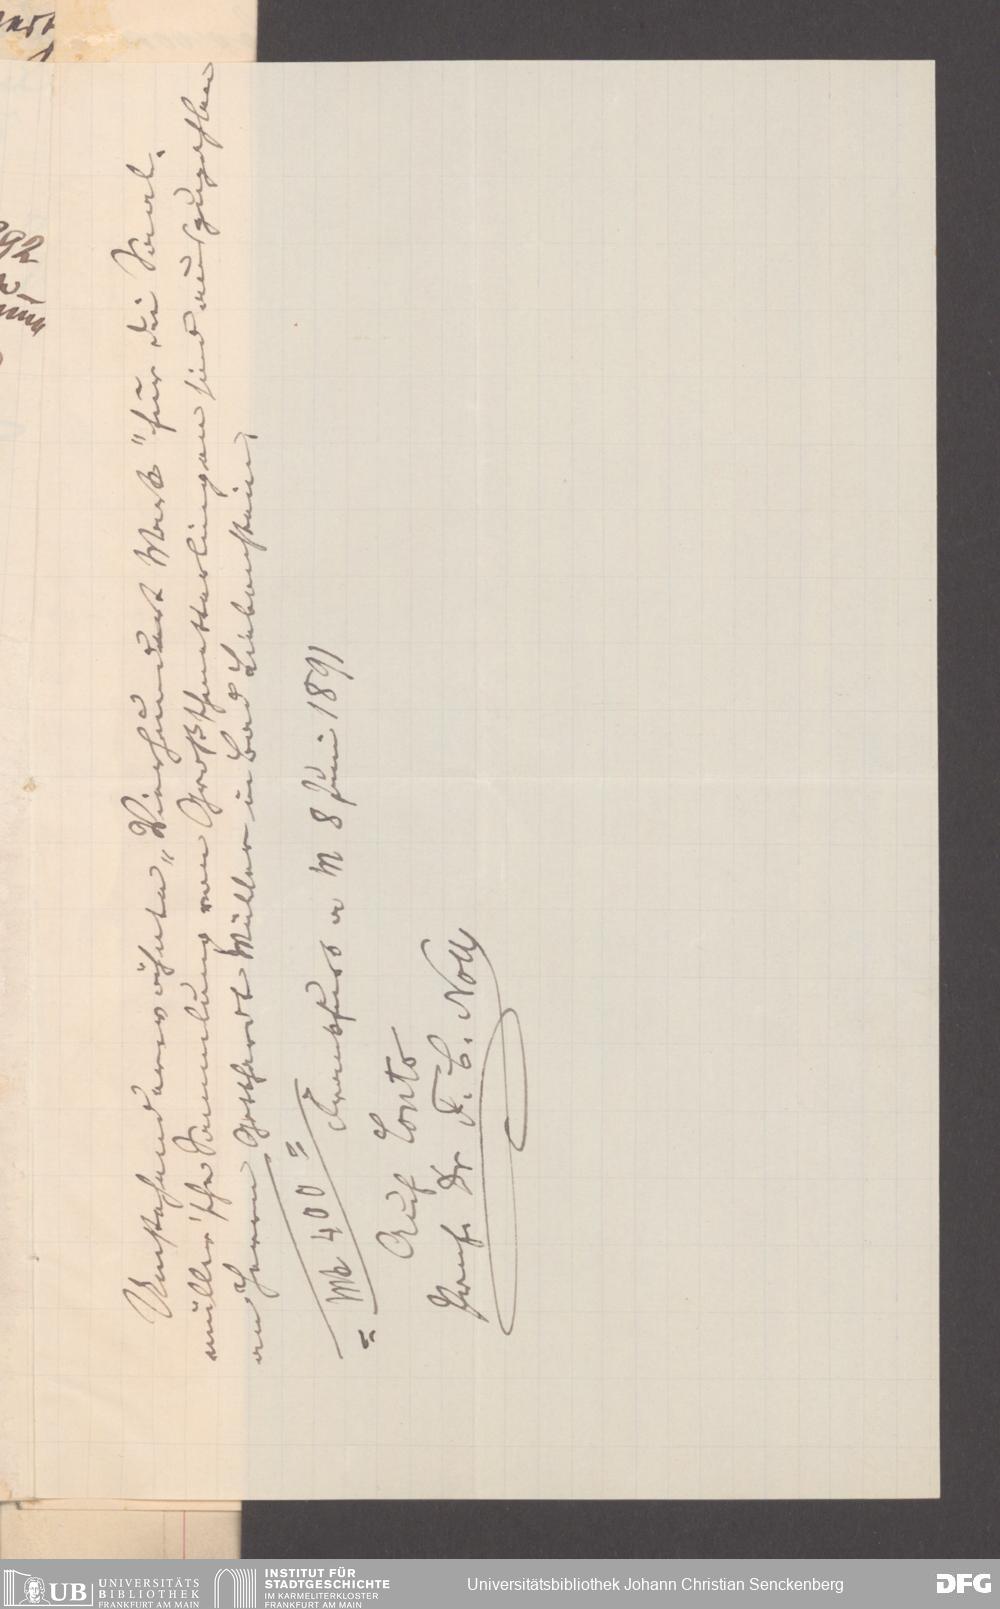 Umstehend erwähnte „Vierhundert Mark" für die Saal-
müller'sche Sammlung von Großschmetterlingen sind auszuzahlen
an Herrn Gotthardt Müller in Bad Liebenstein,
"Mk 400" Frankfurt a M 8 Juni 1891
Auf Conto
Prof. Dr F. C. Noll
92
UB UNIVERSITÄTS
BIBLIOTHEK
FRANKFURT AM MAIN
INSTITUT FÜR
STADTGESCHICHTE
IM KARMELITERKLOSTER
FRANKFURT AM MAIN
Universitätsbibliothek Johann Christian Senckenberg
DFG